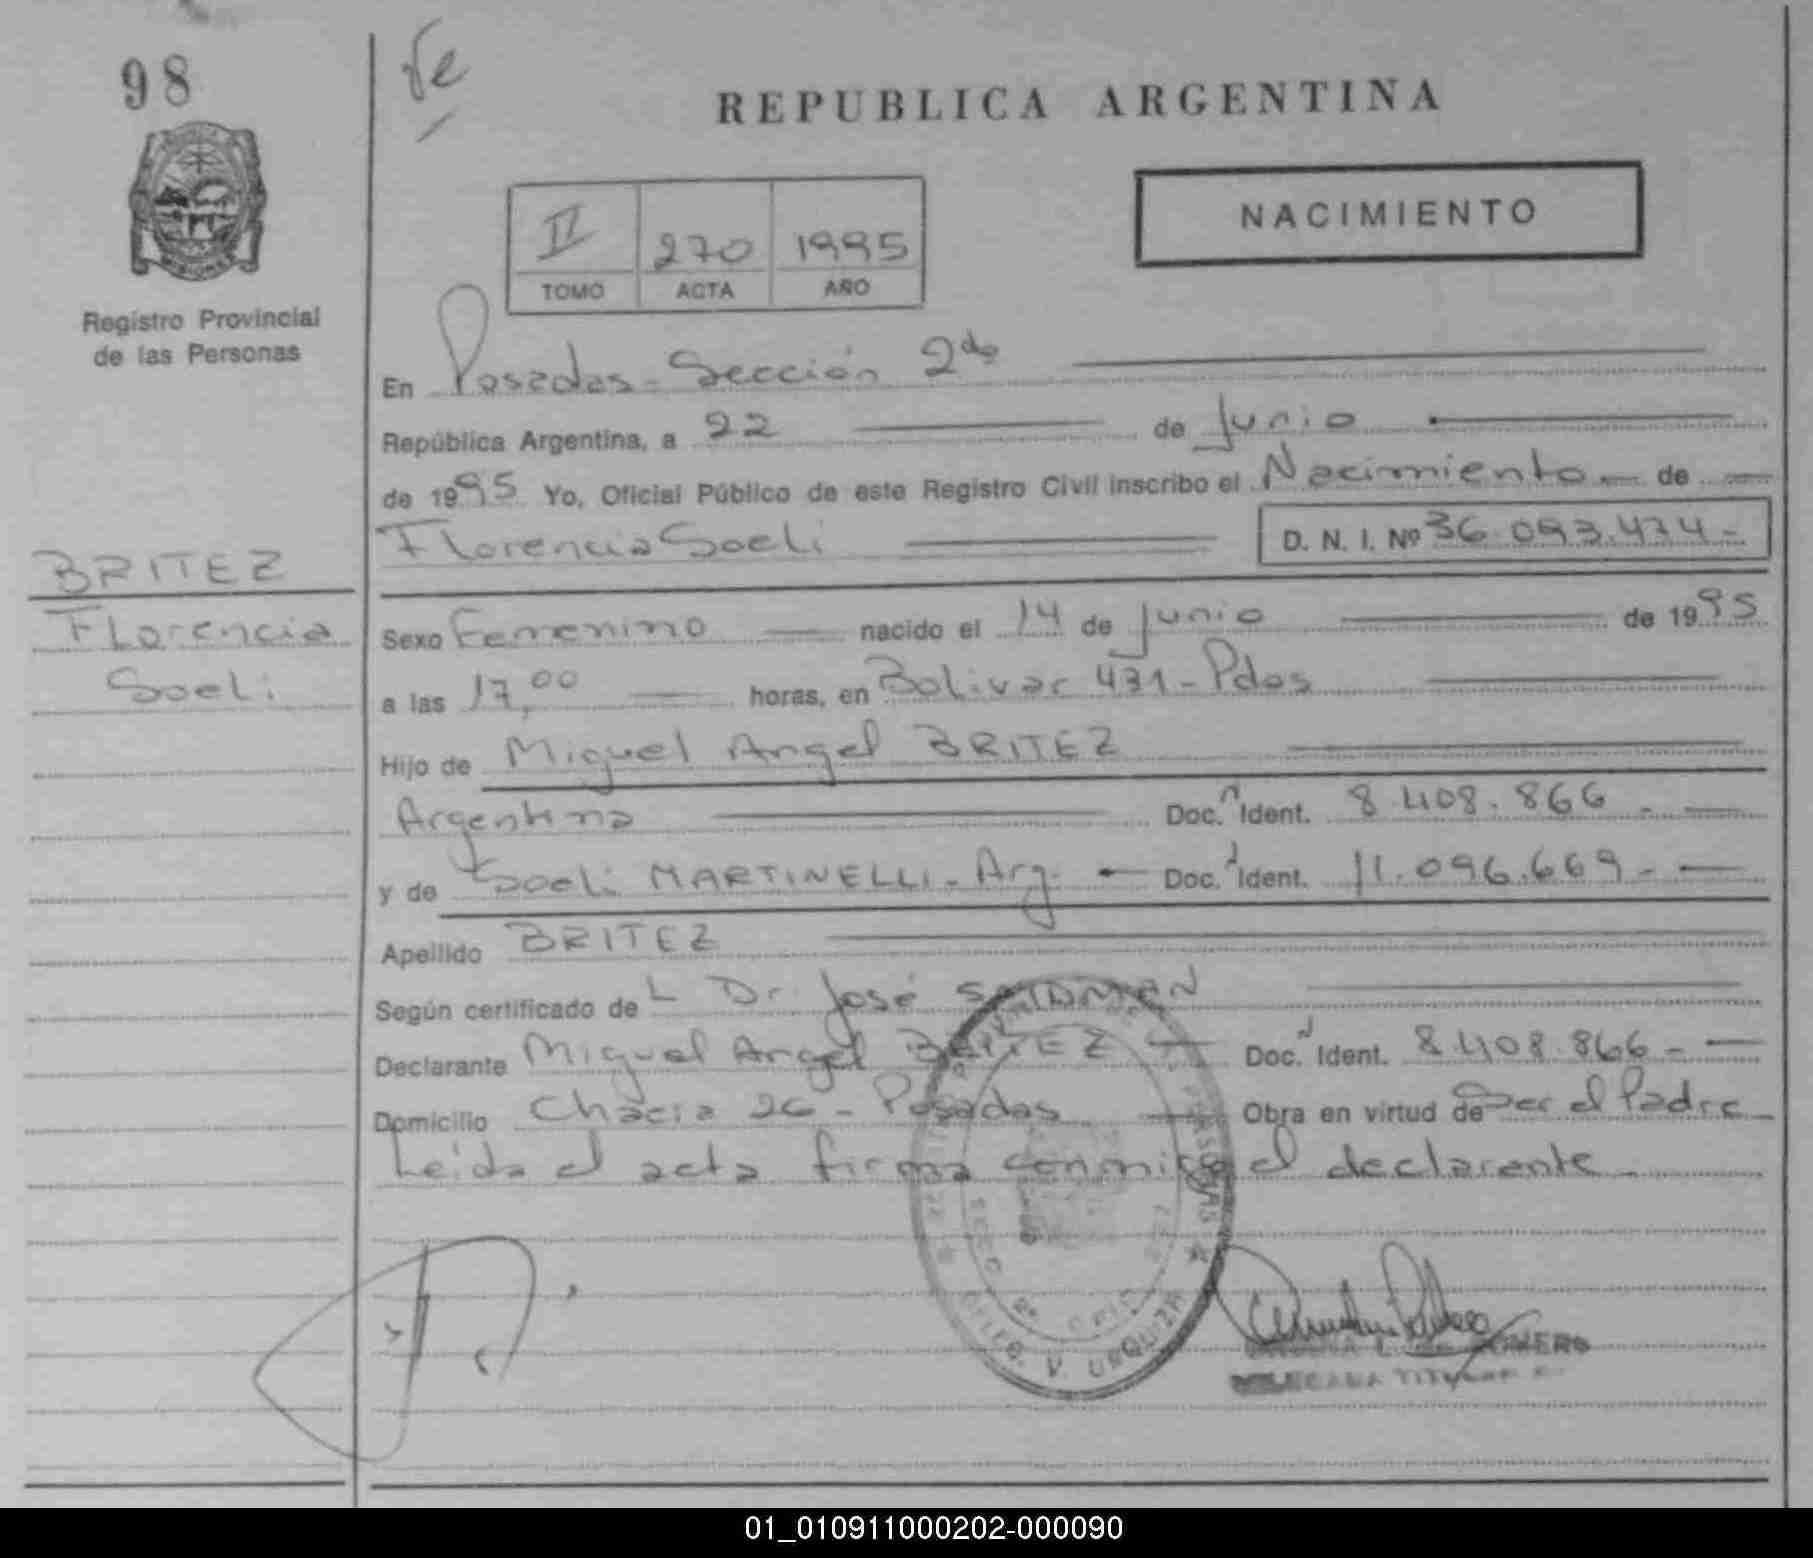 98
REPUBLICA ARGENTINA
NACIMIENTO
II 270 1995
TOMO ACTA AÑO
MISIONES
Registro Provincial
de las Personas
En Posadas - Sección 2da
República Argentina, a 22 de Junio
de 1995 Yo, Oficial Público de este Registro Civil inscribo el Nacimiento de
Florencia Soeli D. N. I. Nº 36.093.474-
BRITEZ
Florencia
Soeli
Sexo Femenino nacido el 14 de Junio de 1995
a las 17,00 horas, en Bolivar 431 - Pdas
Hijo de Miguel Angel BRITEZ
Argentina Doc. Ident. 8.408.866.-
y de Soeli MARTINELLI - Arg. Doc. Ident. 11.096.669.-
Apellido BRITEZ
Según certificado de L Dr. José
Declarante Miguel Angel BRITEZ Doc. Ident. 8.408.866.-
Domicilio 26 - Posadas Obra en virtud de Ser el Padre
Leída el acta firma conmigo el declarante.
V. URQUIZA
01_010911000202-000090